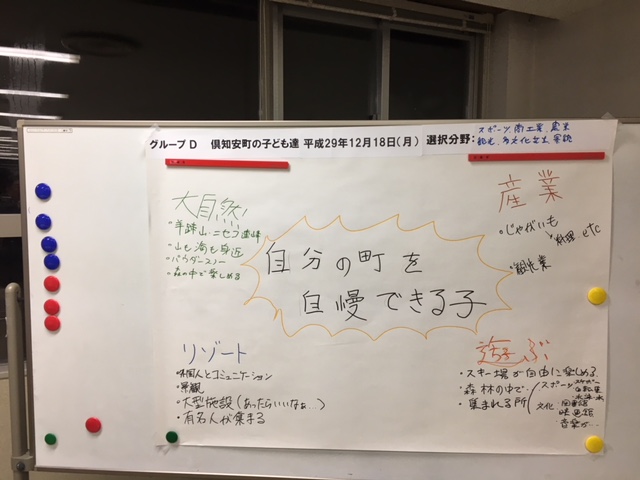 グループD 倶知安町の子ども達 平成29年12月18日(月) 選択分野:
スポーツ、商工業、農業
観光、多文化共生、
大自然
・羊蹄山・ニセコ連峰
・山も海も身近
・パウダースノー
・森の中で楽しめる
産業
・じゃがいも
料理 etc
自分の町を
自慢できる子
リゾート
・外国人とコミュニケーション
・景観
・大型施設(あったらいいなぁ…)
・有名人が集まる
遊ぶ
・スキー場が自由に楽しめる
・森林の中で
・集まれる所
スポーツ
スケボー
自転車
水泳
文化
図書館
映画館
音楽が…